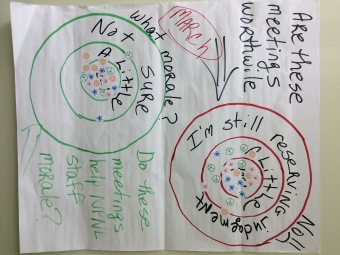 Are these
meetings
worthwile
MARCH
No!!
I'm still reserving
judgement
A little
What morale?
Not sure
A little
Do these
meetings
help
staff
morale?